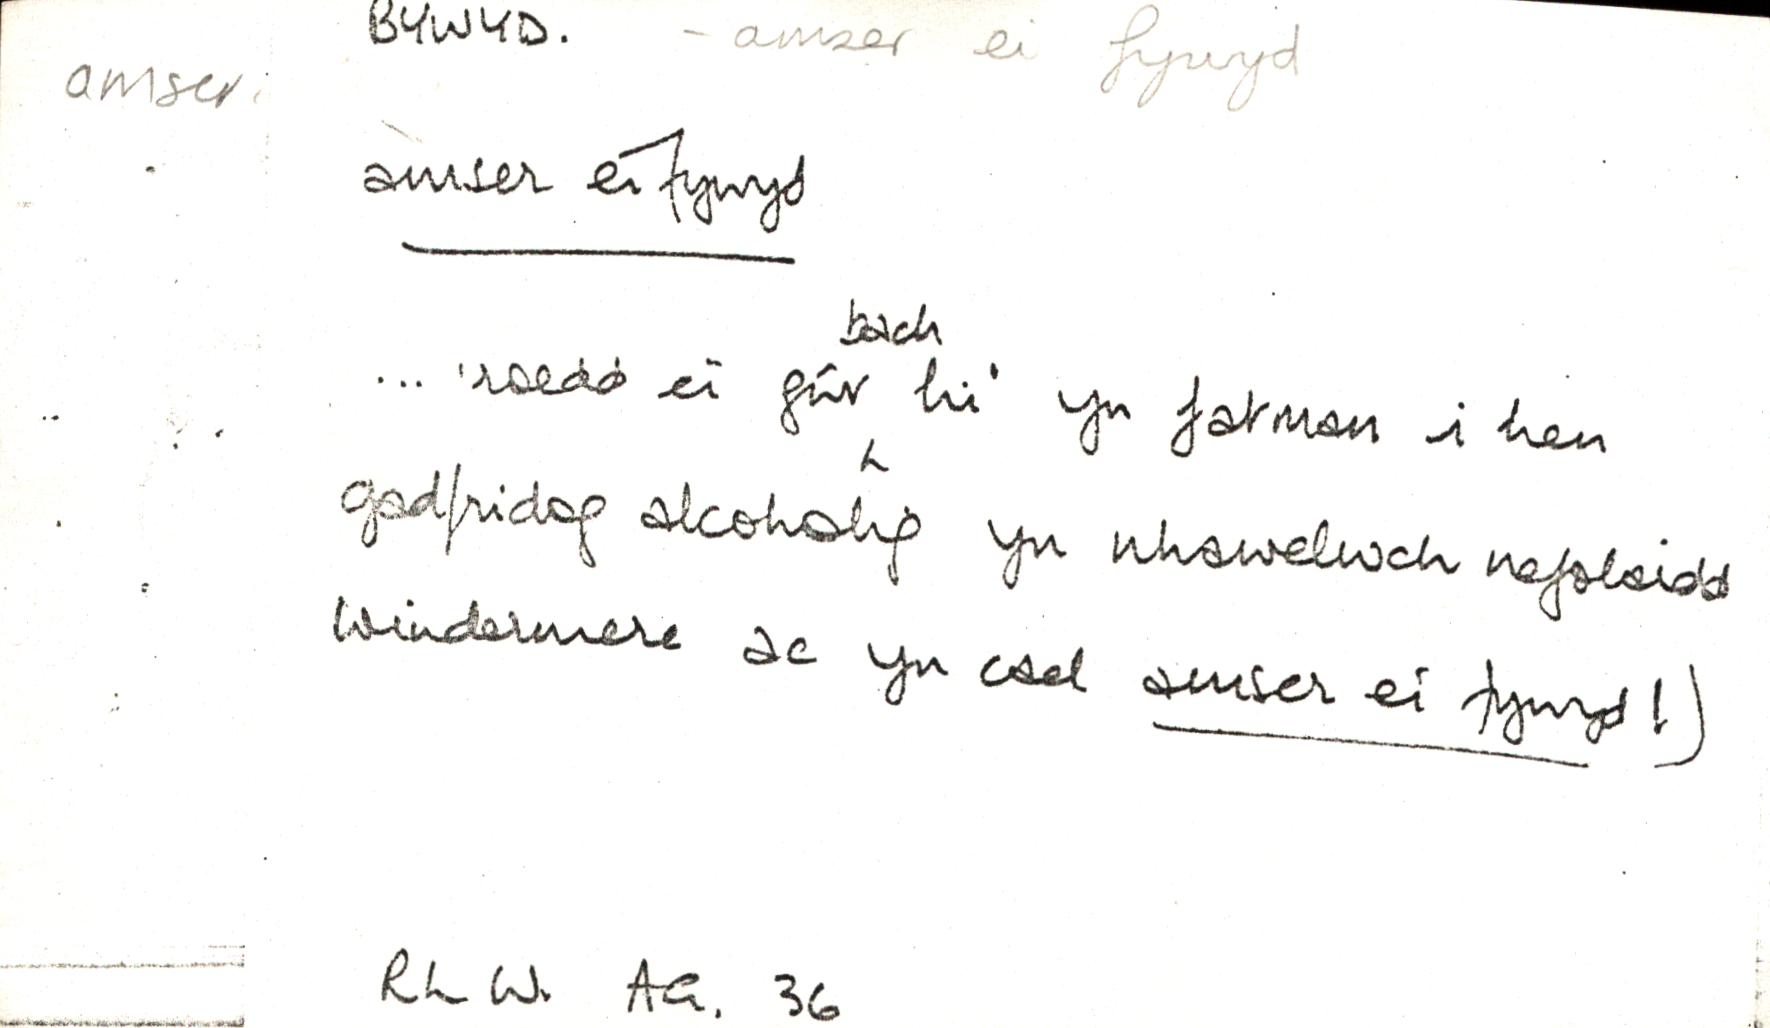 BYWYD. - amser ei fywyd
amser.
amser ei fywyd
bach
... 'roedd ei gŵr hi' yn fatman i hen
gadfridog alcoholig yn nhawelwch nefolaidd
Windermere ac yn cael amser ei fywyd!)
Rh W. AG. 36